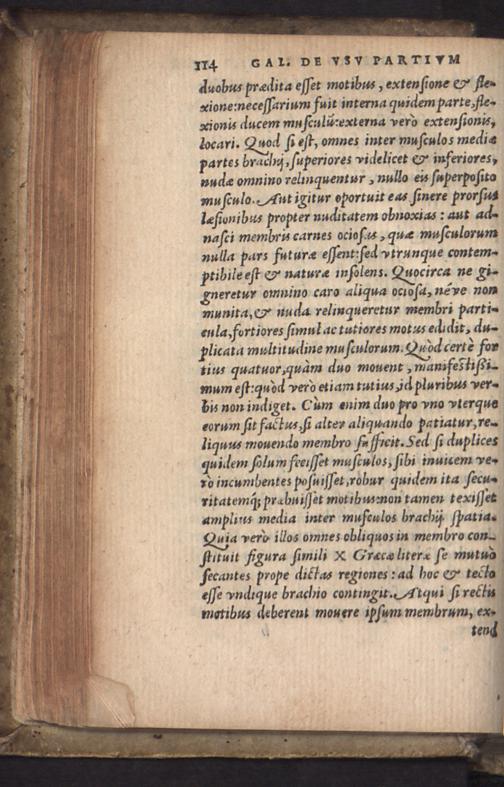 114 GAL. DE VSV PARTIVM
duobus prædita esset motibus, extensione & fle-
xione: necessarium fuit interna quidem parte, fle-
xionis ducem musculũ: externa verò extensionis,
locari. Quod si est, omnes inter musculos mediæ
partes brachij, superiores videlicet & inferiores,
nudæ omnino relinquentur, nullo eis superposito
musculo. Aut igitur oportuit eas sinere prorsus
læsionibus propter nuditatem obnoxias: aut ad-
nasci membris carnes ociosas, quæ musculorum
nulla pars futuræ essent: sed vtrunque contem-
ptibile est & naturæ insolens. Quocirca ne gi-
gneretur omnino caro aliqua ociosa, néve non
munita, & nuda relinqueretur membri parti-
cula, fortiores simul ac tutiores motus edidit, du-
plicata multitudine musculorum. Quòd certè for
tius quatuor, quàm duo mouent, manifestissi-
mum est: quòd verò etiam tutius, id pluribus ver-
bis non indiget. Cùm enim duo pro vno vterque
eorum sit factus, si alter aliquando patiatur, re-
liquus mouendo membro sufficit. Sed si duplices
quidem solum fecisset musculos, sibi inuicem ve-
rò incumbentes posuisset, robur quidem ita secu-
ritatemq; præbuisset motibus: non tamen texisset
amplius media inter musculos brachij spatia.
Quia verò illos omnes obliquos in membro con-
stituit figura simili X Græcæ literæ se mutuò
secantes prope dictas regiones: ad hoc & tecto
esse vndique brachio contingit. Atqui si rectis
motibus deberent mouere ipsum membrum, ex-
tend